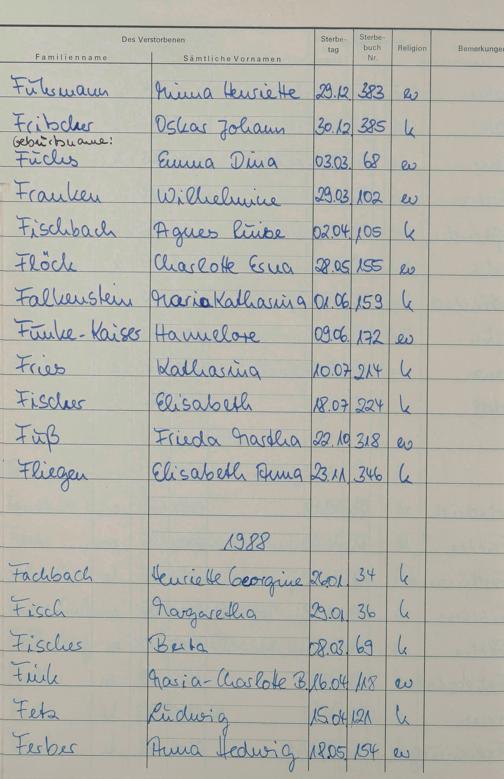 Des Verstorbenen Sterbe- Sterbe- Religion Bemerkungen
Familienname Sämtliche Vornamen tag buch Nr.
Fuhrmann Minna Henriette 29.12 383 ev
Fritscher Oskar Johann 30.12 385 k
Geburtsname:
Fuchs Emma Dina 03.03. 68 ev
Franken Wilhelmine 29.03 102 ev
Fischbach Agnes Luise 02.04 105 k
Flöck Charlotte Erna 28.05 155 ev
Falkenstein Maria Katharina 01.06 159 k
Funke-Kaiser Hannelore 09.06. 172 ev
Fries Katharina 10.07 214 k
Fischer Elisabeth 18.07 224 k
Fuß Frieda Martha 22.10 318 ev
Fliegen Elisabeth Anna 23.11 346 k
1988
Fachbach Henriette Georgine 26.01. 34 k
Fisch Margaretha 29.01 36 k
Fischer Berta 08.03. 69 k
Fink Maria-Charlotte B. 16.04 118 ev
Fetz Ludwig 15.04 121 k
Ferber Anna Hedwig 18.05 154 ev